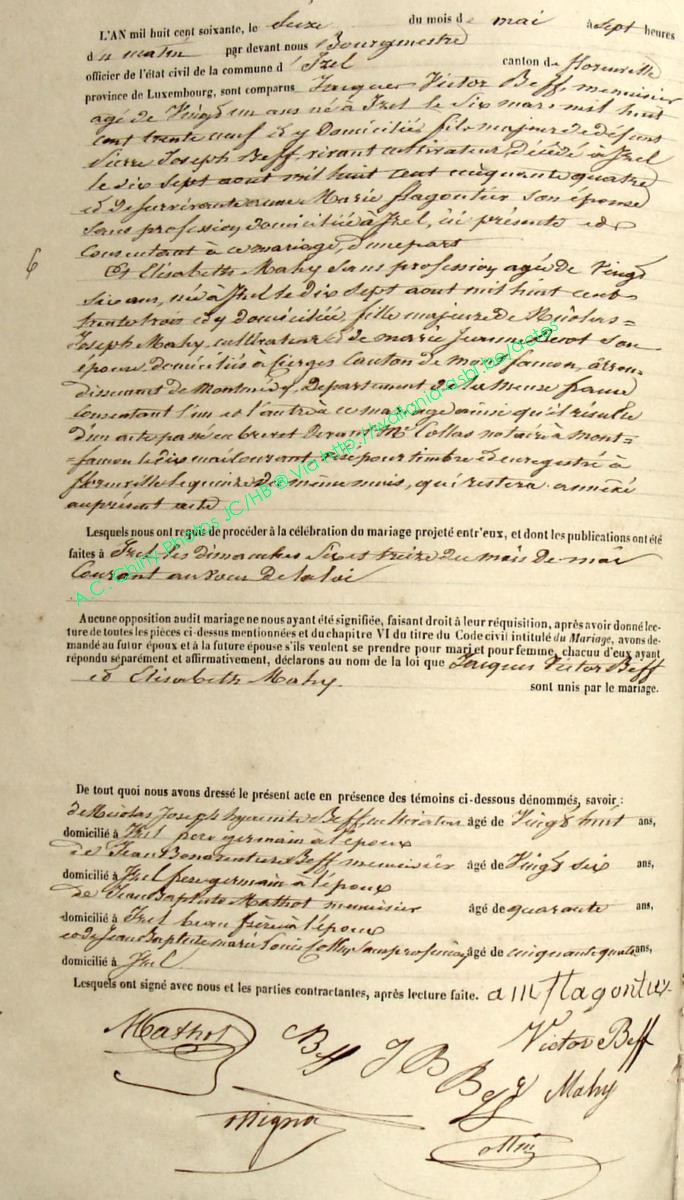 L'AN mil huit cent soixante, le seize du mois de mai à sept heures
du matin par devant nous Bourgmestre
officier de l'état civil de la commune d'Izel canton de florenville
province de Luxembourg, sont comparus Jacques Victor Beff menuisier
agé de Vingt un ans né à Izel le six mars mil huit
cent trente neuf et y Domicilié fils majeur de défunt
Pierre Joseph Beff vivant cultivateur, décédé à Izel
le dix sept aout mil huit cent cinquante quatre
et de survivante anne Marie flagontier son épouse
sans profession, domiciliée à Izel, ici présente et
consentant à ce mariage, d'une part
6
Et Elisabeth Mahy sans profession, agée de Vingt
six ans, née à Izel le dix sept aout mil huit cent
trente trois et y domiciliée, fille majeure de Nicolas=
Joseph Mahy, cultivateur et de marie Jeanne son
épouse, domiciliés à Cierges Canton de Mont=faucon, arron-
dissement de Montmédy, Departement de la Meuse france
consentant l'un et l'autre à ce mariage ainsi qu'il résulte
d'un acte passé en brevet devant Mr. Collas notaire à Mont=
=faucon le dix mai courant, visé pour timbre et enregistré à
florenville le quinze du même mois, qui restera annéxé
au présent acte
Lesquels nous ont requis de procéder à la célébration du mariage projeté entr'eux, et dont les publications ont été
faites à Izel les dimanches six et treize du mois de mai
Courant au vœu de la loi
Aucune opposition audit mariage ne nous ayant été signifiée, faisant droit à leur réquisition, après avoir donné lec-
ture de toutes les pièces ci-dessus mentionnées et du chapitre VI du titre du Code civil intitulé du Mariage, avons de-
mandé au futur époux et à la future épouse s'ils veulent se prendre pour mari et pour femme, chacun d'eux ayant
répondu séparément et affirmativement, déclarons au nom de la loi que Jacques Victor Beff
et Elisabeth Mahy. sont unis par le mariage.
De tout quoi nous avons dressé le présent acte en présence des témoins ci-dessous dénommés, savoir :
de Nicolas Joseph hyacinte Beff cultivateur âgé de Vingt huit ans,
domicilié à Izel frere germain à l'époux
de Jean Bonaventure Beff menuisier âgé de Vingt six ans,
domicilié à Izel frere germain à l'époux
de Jean Baptiste Mathot menuisier âgé de quarante ans,
domicilié à Izel beau frère à l'époux
et de Jean Baptiste marie Louis sans profession âgé de cinquante quatre ans,
domicilié à Izel
Lesquels ont signé avec nous et les parties contractantes, après lecture faite. a m flagontier
Mathot Beff J B Beff Victor Beff
Mahy
A.C. Chiny Photos JC/HB @ Via http://wallonia-asbl.be/actes